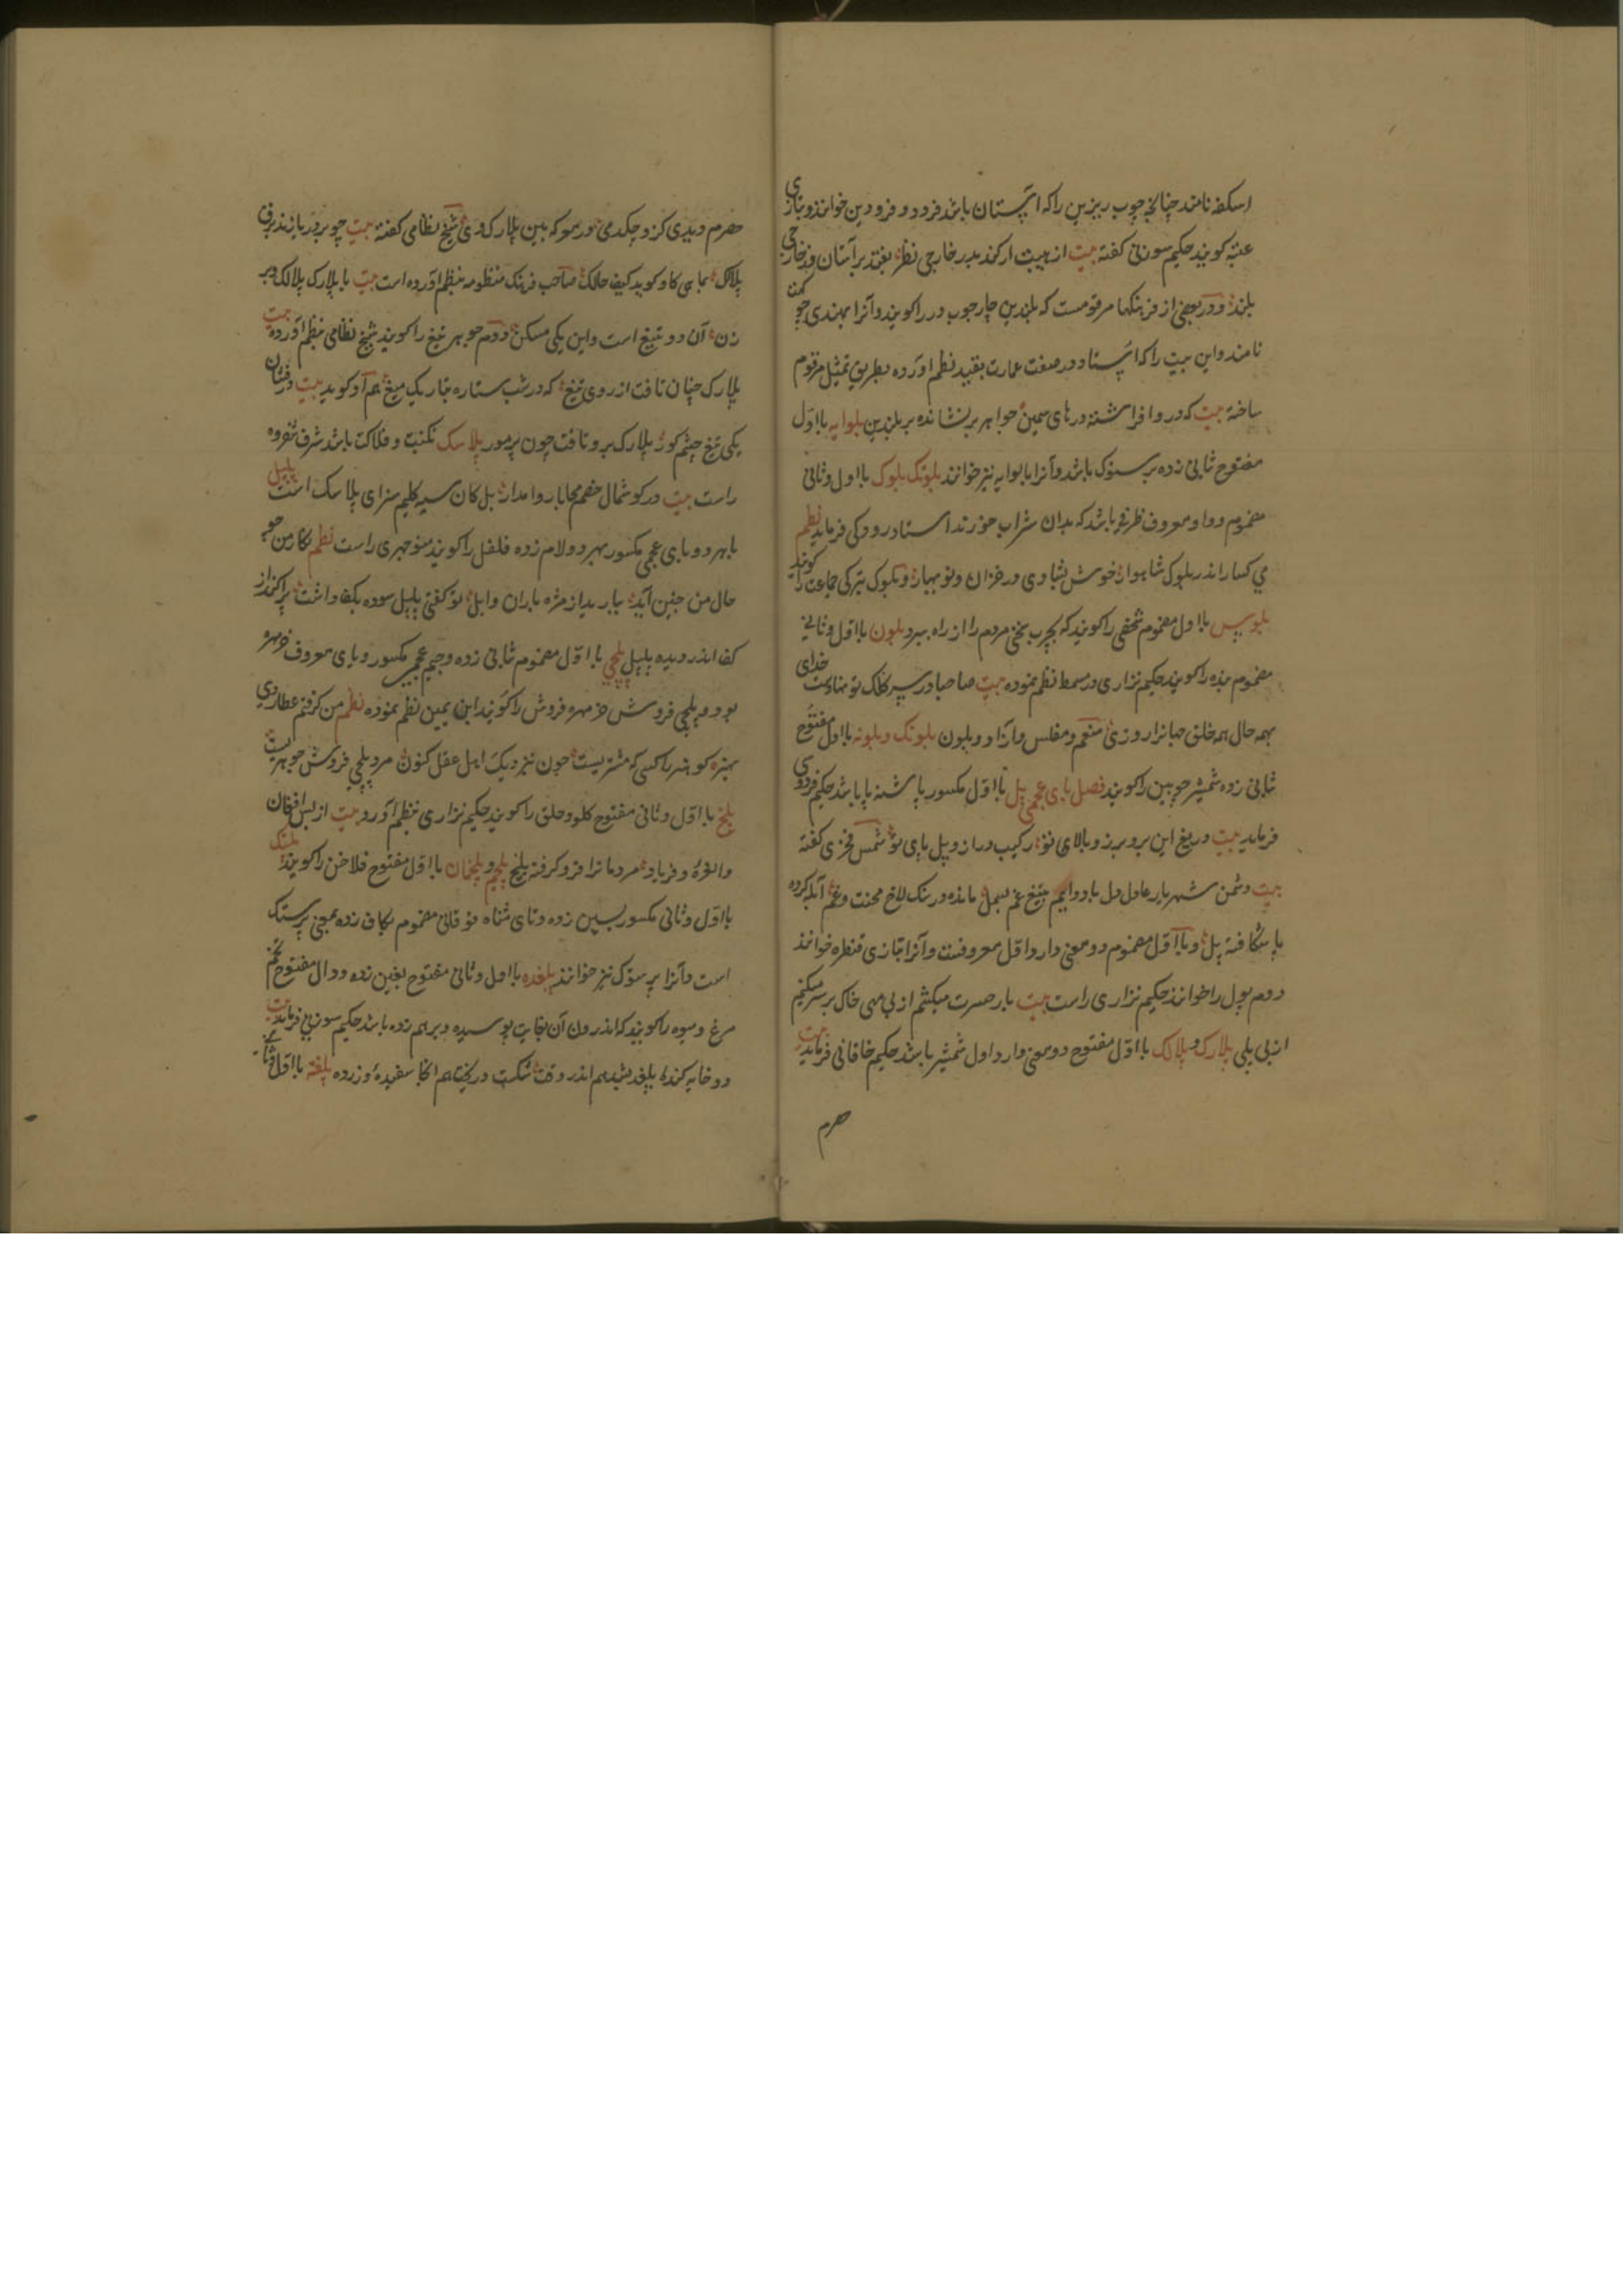 اسکفه نامند چنانچه چوب زیرین را که آستان باشد فرود و فرودین خوانند و بتازی
عتبه کویند حکیم سوزنی کفته بیت از هیبت ار کند بدر خارجی نظر افتد بر آستان در خارجی
بلند و در بعضی از فرهنکها مرقومست که بلندین چارچوب در را کویند و آنرا بهندی
نامند و این بیت را که استاد در صفت عمارت بقید نظم آورده بطریق تمثیل مرقوم
ساخته بیت که در و افراشته درهای سیمین جواهر بر نشانده بر بلندین بلوایه با اول
مفتوح ثانی زده پرستوک باشد و آنرا بالوایه نیز خوانند بلونک بلوک با اول و ثانی
مضموم و واو معروف ظرفی باشد که بدان شراب خورند استاد رودکی فرماید نظم
می کسار اندر بلوک شاهوار خوش بشادی در خزان و نوبهار و بلوک بترکی جماعت را کویند
بلوس با اول مضموم شخصی را کویند که بچرب سخنی مردم را از راه ببرد بلون با اول و ثانی
مضموم بنده را کویند حکیم نزاری در مسمط نظم نموده بیت صاحبا در سیر کلک تو نهادست خدای
بهمه حال همه خلق جهانرا روزی منعم و مفلس و آزاد و بلون بلونک و بلونه با اول مفتوح
ثانی زده شمشیر چوبین را کویند فصل بای عجمی پل با اول مکسور پاشنه پا باشد حکیم فردوسی
فرماید بیت دریغ این بر و برز و بالای تو رکیب دراز و پل پای تو شمس فخری کفته
بیت دشمن شهریار عادل دل باد دایم بتیغ غم بسمل مانده در سنک لاخ محنت و غم آبله کرده
پا شکافته پل و با اول مضموم دو معنی دارد اول معروفست و آنرا بتازی قنطره خوانند
دوم پول را خوانند حکیم نزاری راست بیت بار حسرت میکشم از بی مهی خاک بر سر میکنم
از بی پلی پلارک و پلالک با اول مفتوح دو معنی دارد اول شمشیر باشد حکیم خاقانی فرماید بیت
حصرم
حصرم دیدی کزو چکد می نور مو که ببین پلارک وی شیخ نظامی کفته بیت چو بر دریا زند برق
پلالک بماهی کاو کوید کیف حالک صاحب فرهنک منظومه بنظم آورده است بیت با پلارک پلالک دبر
زن آن دو تیغ است و این یکی مسکن دوم جوهر تیغ را کویند شیخ نظامی بنظم آورده بیت
پلارک چنان تافت از روی تیغ که در شب ستاره بتاریک میغ هم او کوید بیت درفشان
یکی تیغ چشم کور پلارک برو تافت چون پر مور پلاسک نکبت و فلاکت باشد شرف شفروه
راست بیت در کوشمال خصم محابا روا مدار بل کان سیه کلیم سزای پلاسک است پلپل
با هر دو بای عجمی مکسور بهر دو لام زده فلفل را کویند منوچهری راست نظم نکار من چو
حال من چنین آید ببارید از مژه باران وابل تو کفتی پلپل سوده بکف داشت پراکند از
کف اندر دیده پلپل پلچی با اول مضموم ثانی زده و جیم عجمی مکسور و یای معروف خرمهره
بود و پلچی فروش خرمهره فروش را کویند ابن یمین نظم نموده نظم من کرفتم عطاردی
بهنر کو هنر را کسی که مشتریست چون بنزدیک اهل عقل کنون مرد پلچی فروش جوهریست
پلخ با اول و ثانی مفتوح کلو و حلق را کویند حکیم نزاری بنظم آورد بیت از بس افغان
و فریاد مردمانرا فرو کرفته پلخ پلخم و پلخمان با اول مفتوح فلاخن را کویند پلستک
با اول و ثانی مکسور بسین زده و تای مثناه فوقانی مضموم بکاف زده بمعنی پرستک
است و آنرا پرسوک نیز خوانند پلغده با اول و ثانی مفتوح بغین زده و دال مفتوح تخم
مرغ و میوه را کویند که اندرون آن بغایت پوسیده و برهم زده باشد حکیم سوزنی فرماید بیت
دو خایه کنده پلغده شدیم اندر وقت شکست و ریخت هم آنجا سفیده و زرده پلغته با اول و ثانی